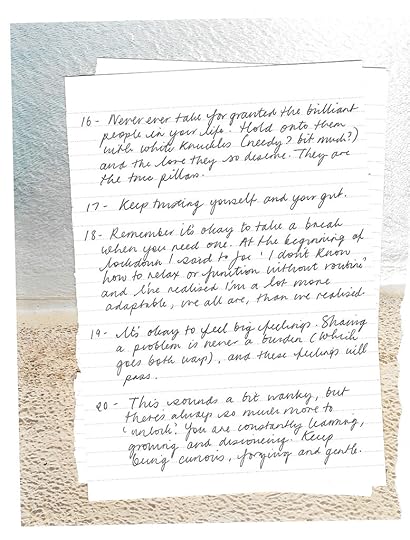 16 - Never ever take for granted the brilliant
people in your life. Hold onto them
with white knuckles (needy? bit much?)
and the love they so deserve. They are
the true pillars.
17 - Keep trusting yourself and your gut.
18 - Remember it's okay to take a break
when you need one. At the beginning of
lockdown I said to Joe 'I don't know
how to relax or function without routine'
and I've realised I'm a lot more
adaptable, we all are, than we realised.
19 - It's okay to feel big feelings. Sharing
a problem is never a burden (which
goes both ways), and these feelings will
pass.
20 - This sounds a bit wanky, but
there's always so much more to
'unlock'. You are constantly learning,
growing and discovering. Keep
being curious, forgiving and gentle.